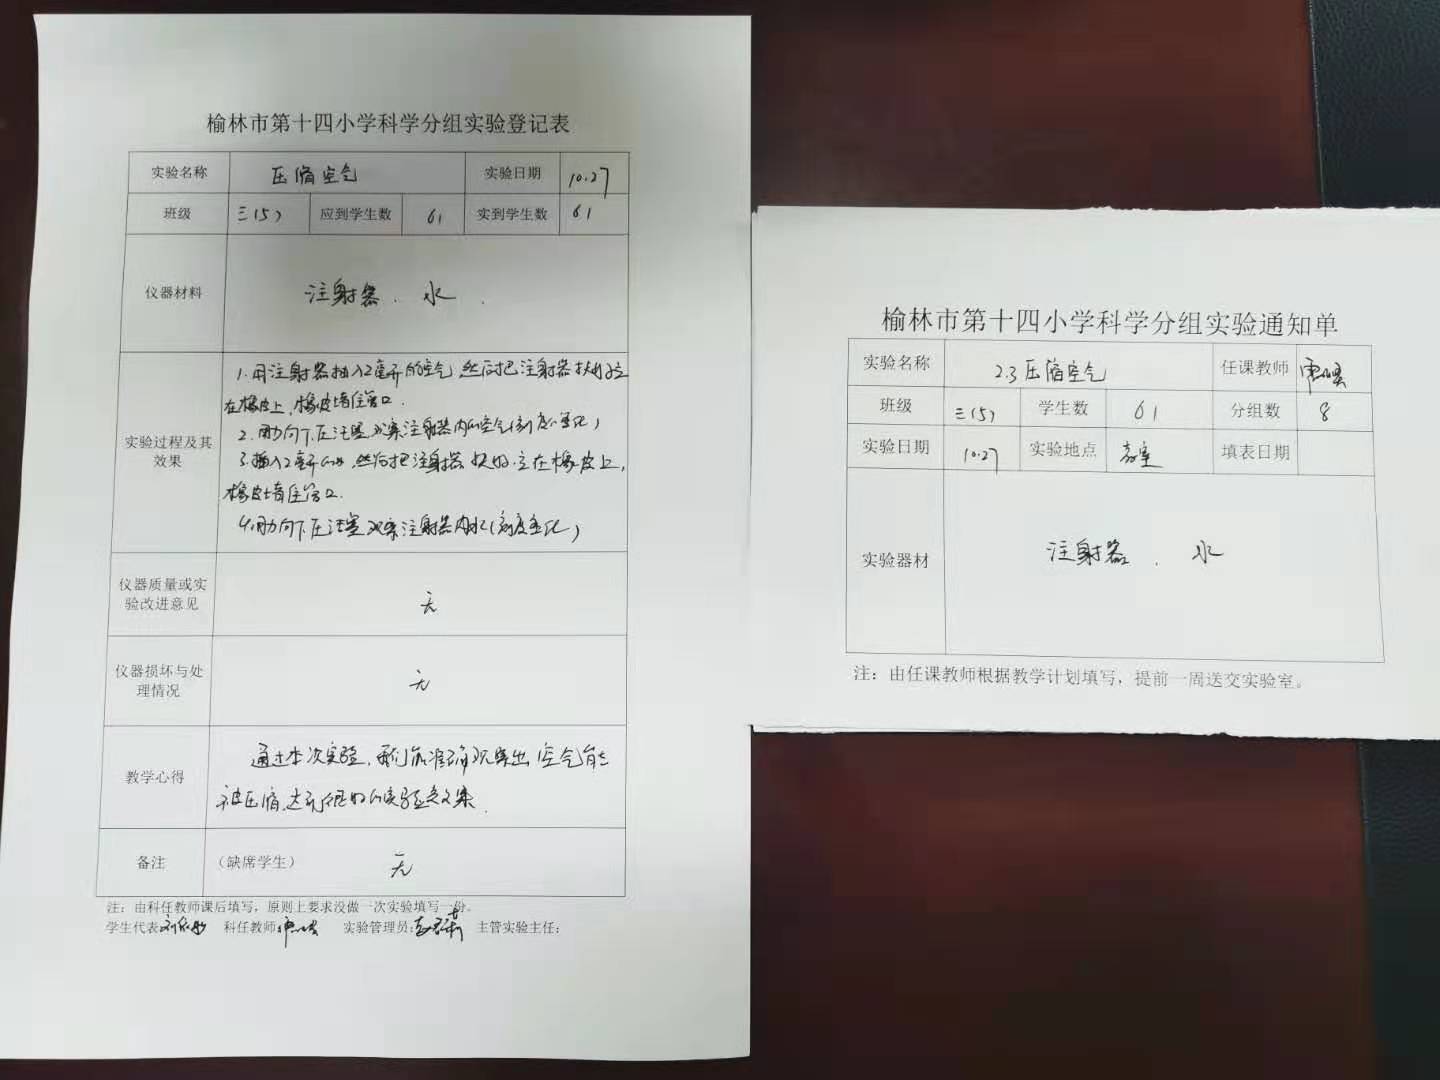 榆林市第十四小学科学分组实验登记表
实验名称 压缩空气 实验日期 10.27
班级 三(5) 应到学生数 61 实到学生数 61
仪器材料 注射器. 水.
实验过程及其效果
1.用注射器抽入2毫升的空气 然后把注射器
在橡皮上,橡皮堵住管口.
2.用力向下压活塞观察注射器内的空气(刻度变化)
3.插入2毫升 然后把注射器 立在橡皮上,
橡皮堵住管口.
4.用力向下压活塞观察注射器内水(刻度变化)
仪器质量或实验改进意见 无
仪器损坏与处理情况 无
教学心得
通过本次实验,我们能准确观察出空气能
被压缩,达到很好的实验效果.
备注 (缺席学生) 无
注:由科任教师课后填写,原则上要求没做一次实验填写一份。
学生代表 科任教师: 实验管理员: 主管实验主任:
榆林市第十四小学科学分组实验通知单
实验名称 2.3压缩空气 任课教师
班级 三(5) 学生数 61 分组数 8
实验日期 10.27 实验地点 教室 填表日期
实验器材 注射器. 水
注:由任课教师根据教学计划填写,提前一周送交实验室。